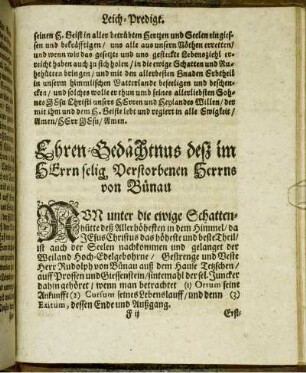 Leich-Predigt.
seinen H. Geist in aller betrübten Hertzen und Seelen eingies-
sen und bekräfftigen/ uns alle aus unsern Nöthen erretten/
und wenn wir das gesetzte und uns gesteckte Lebensziehl er-
reicht haben auch zu sich holen/ in die ewige Schatten und Ru-
hehütten bringen/ und mit den allerbesten Gnaden Erbtheil
in unserm himmlischen Vaterlande beseeligen und beschen-
cken/ und solches wolle er thun umb seines allerliebsten Soh-
nes JEsu Christi unsers HErren und Heylandes Willen/ der
mit ihm und dem H. Geiste lebt und regiert in alle Ewigkeit/
Amen/ HErr JEsu/ Amen.
Ehren-Gedächtnus deß im
HErrn selig Verstorbenen Herrns
von Bünau
NUN unter die ewige Schatten-
hütte deß Allerhöhesten in dem Himmel/ da
JEsus Christus das höheste und beste Theil/
ist auch der Seelen nachkommen und gelanget der
Weiland Hoch-Edelgebohrne/ Gestrenge und Veste
Herr Rudolph von Bünau auß dem Hause Tetzschen/
auff Prossen und Giessenstein/ sintemahl der sel. Juncker
dahin gehöret/ wenn man betrachtet (1) Ortum seine
Ankunfft (2) Cursum seines Lebenslauff/ und denn (3)
Exitum, dessen Ende und Außgang.
F ij
Erst-